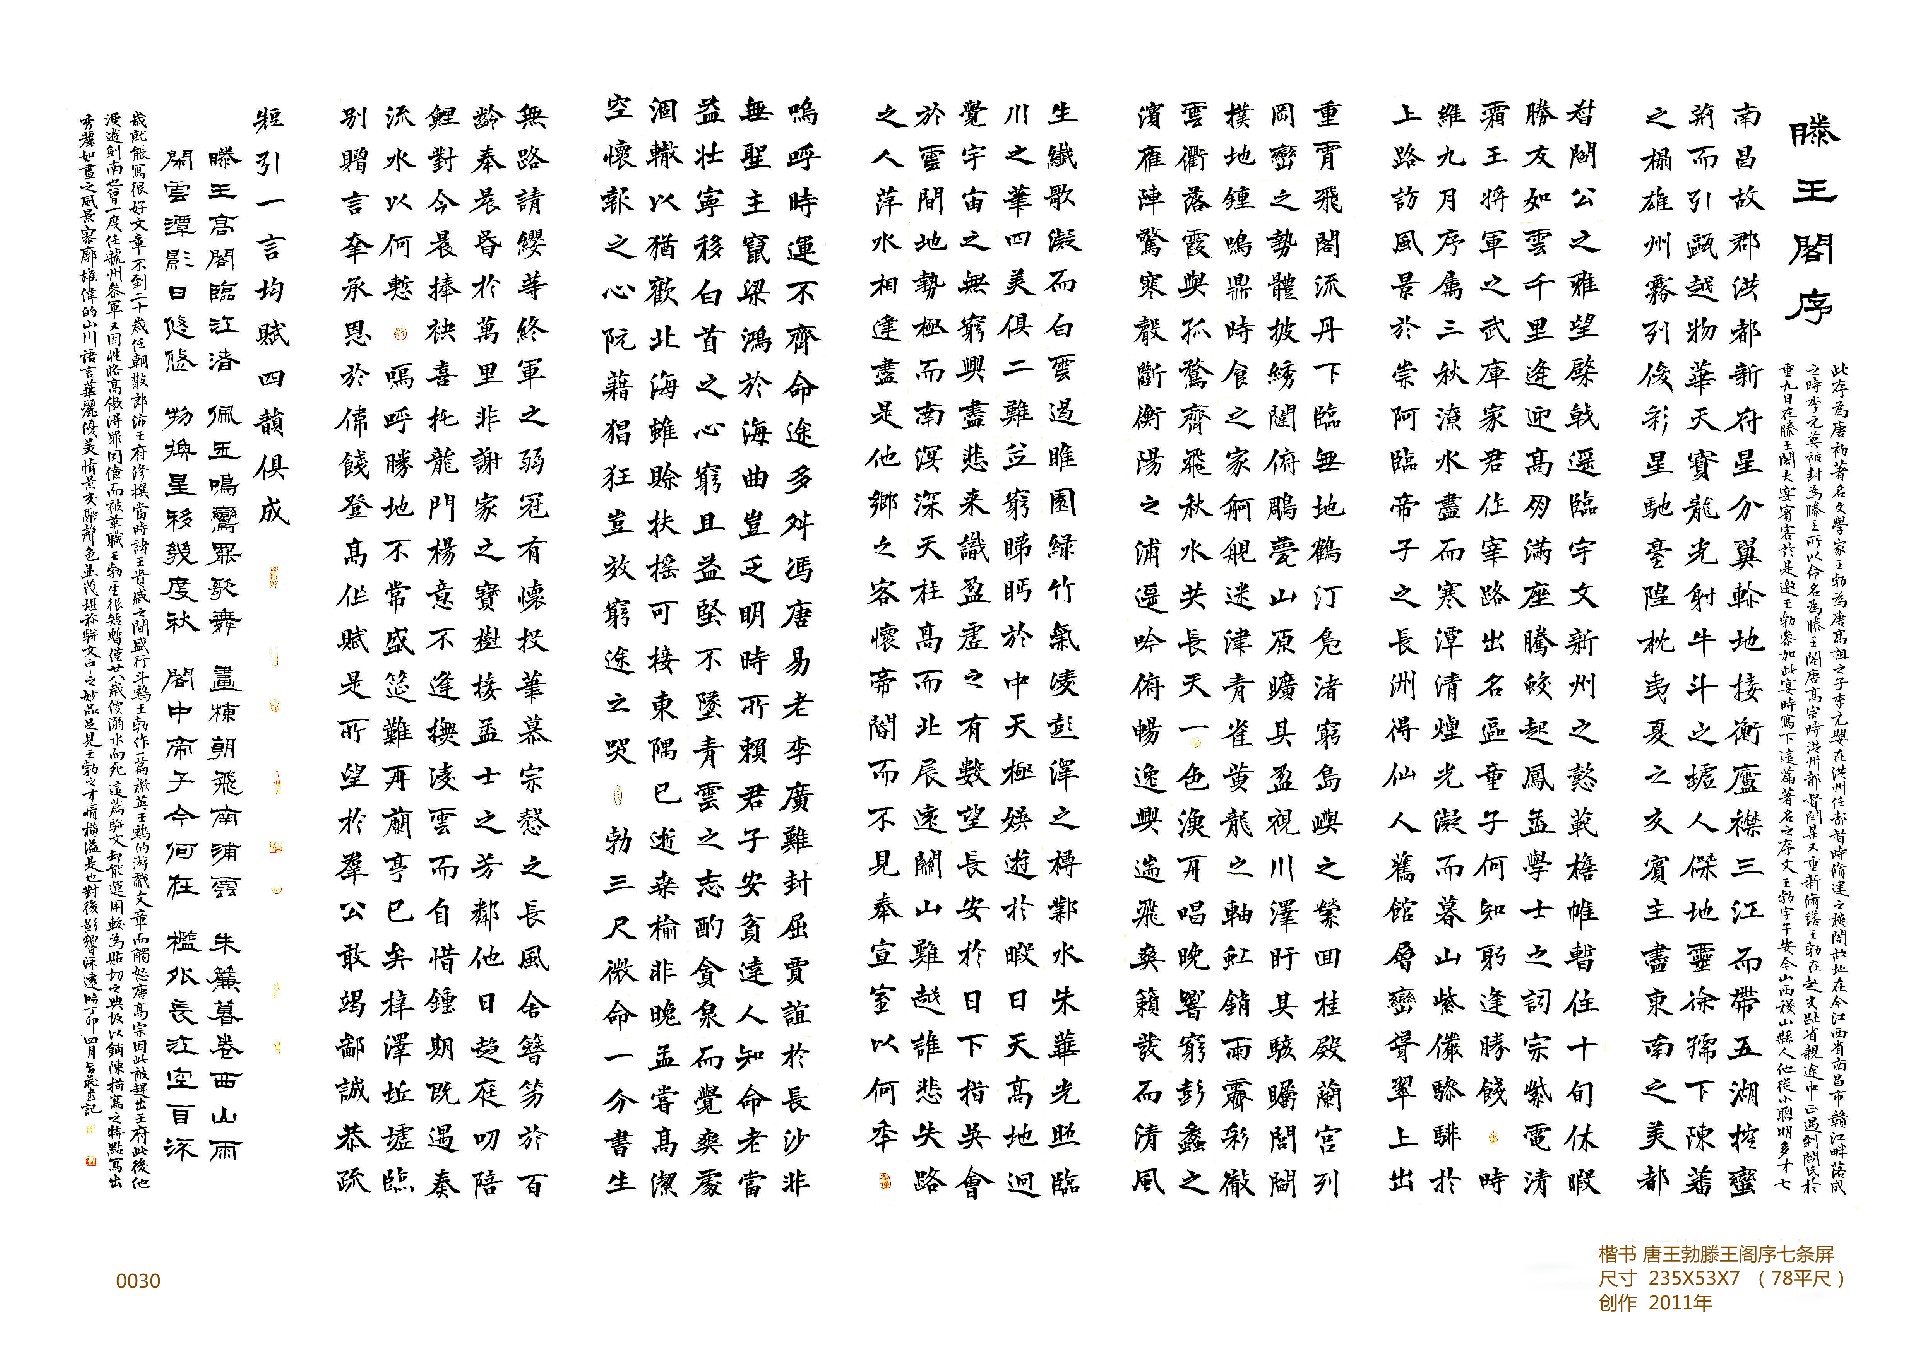 滕王閣序
此序為唐初著名文學家王勃為唐高祖之子李元嬰在洪州任都督時脩建之樓閣故址在今江西省南昌市贛江畔落成
之時李元嬰被封為滕王所以命名為滕王閣唐高宗時洪州都督閻某又重新脩繕王勃在赴交趾省親途中正遇到閻氏於
重九日在滕王閣大宴賓客於是邀王勃參加此宴時寫下這篇著名之序文王勃字子安今山西稷山縣人他從小聰明多才七
南昌故郡洪都新府星分翼軫地接衡廬襟三江而帶五湖控蠻
荊而引甌越物華天寶龍光射牛斗之墟人傑地靈徐孺下陳蕃
之榻雄州霧列俊彩星馳臺隍枕夷夏之交賓主盡東南之美都
督閻公之雅望棨戟遙臨宇文新州之懿範襜帷暫住十旬休暇
勝友如雲千里逢迎高朋滿座騰蛟起鳳孟學士之詞宗紫電清
霜王將軍之武庫家君作宰路出名區童子何知躬逢勝餞時
維九月序屬三秋潦水盡而寒潭清煌光凝而暮山紫儼驂騑於
上路訪風景於崇阿臨帝子之長洲得仙人舊館層巒聳翠上出
重霄飛閣流丹下臨無地鶴汀鳧渚窮島嶼之縈回桂殿蘭宮列
岡巒之勢體披綉闥俯鵰甍山原曠其盈視川澤盱其駭矚閭閻
撲地鍾鳴鼎食之家舸艦迷津青雀黃龍之軸虹銷雨霽彩徹
雲衢落霞與孤鶩齊飛秋水共長天一色漁舟唱晚響窮彭蠡之
濱雁陣驚寒聲斷衡陽之浦遙吟俯暢逸興遄飛爽籟發而清風
生纖歌凝而白雲遏睢園綠竹氣凌彭澤之樽鄴水朱華光照臨
川之筆四美俱二難並窮睇眄於中天極娛遊於暇日天高地迥
覺宇宙之無窮興盡悲來識盈虛之有數望長安於日下指吳會
於雲間地勢極而南溟深天柱高而北辰遠關山難越誰悲失路
之人萍水相逢盡是他鄉之客懷帝閽而不見奉宣室以何年
嗚呼時運不齊命途多舛馮唐易老李廣難封屈賈誼於長沙非
無聖主竄梁鴻於海曲豈乏明時所賴君子安貧達人知命老當
益壯寧移白首之心窮且益堅不墜青雲之志酌貪泉而覺爽處
涸轍以猶歡北海雖賒扶搖可接東隅已逝桑榆非晚孟嘗高潔
空懷報之心阮藉猖狂豈效窮途之哭勃三尺微命一介書生
無路請纓等終軍之弱冠有懷投筆慕宗愨之長風舍簪笏於百
齡奉晨昏於萬里非謝家之寶樹接孟士之芳鄰他日趨庭叨陪
鯉對今晨捧袂喜托龍門楊意不逢撫凌雲而自惜鍾期既遇奏
流水以何慙嗚呼勝地不常盛筵難再蘭亭已矣梓澤坵墟臨
別贈言幸承恩於偉餞登高作賦是所望於羣公敢竭鄙誠恭疏
短引一言均賦四韻俱成
滕王高閣臨江渚 佩玉鳴鸞罷歌舞 畫棟朝飛南浦雲 朱簾暮卷西山雨
閑雲潭影日悠悠 物換星移幾度秋 閣中帝子今何在 檻外長江空自流
歲就能寫很好文章不到二十歲任朝散郎沛王府修撰當時諸王貴戚之間盛行斗鷄王勃作一篇檄英王鷄的游戲文章而觸怒唐高宗因此被趕出王府此後他
漫遊劍南當一度任虢州參軍又因性格高傲得罪同僚而被革職王勃生很短暫僅廿八歲後溺水而死這篇駢文却能運用較為貼切之典故以鋪陳描寫之特點寫出
秀麗如畫之風景寥廓雄偉的山川語言華麗優美情景交融
0030
楷书 唐王勃滕王阁序七条屏
尺寸 235X53X7 （78平尺）
创作 2011年